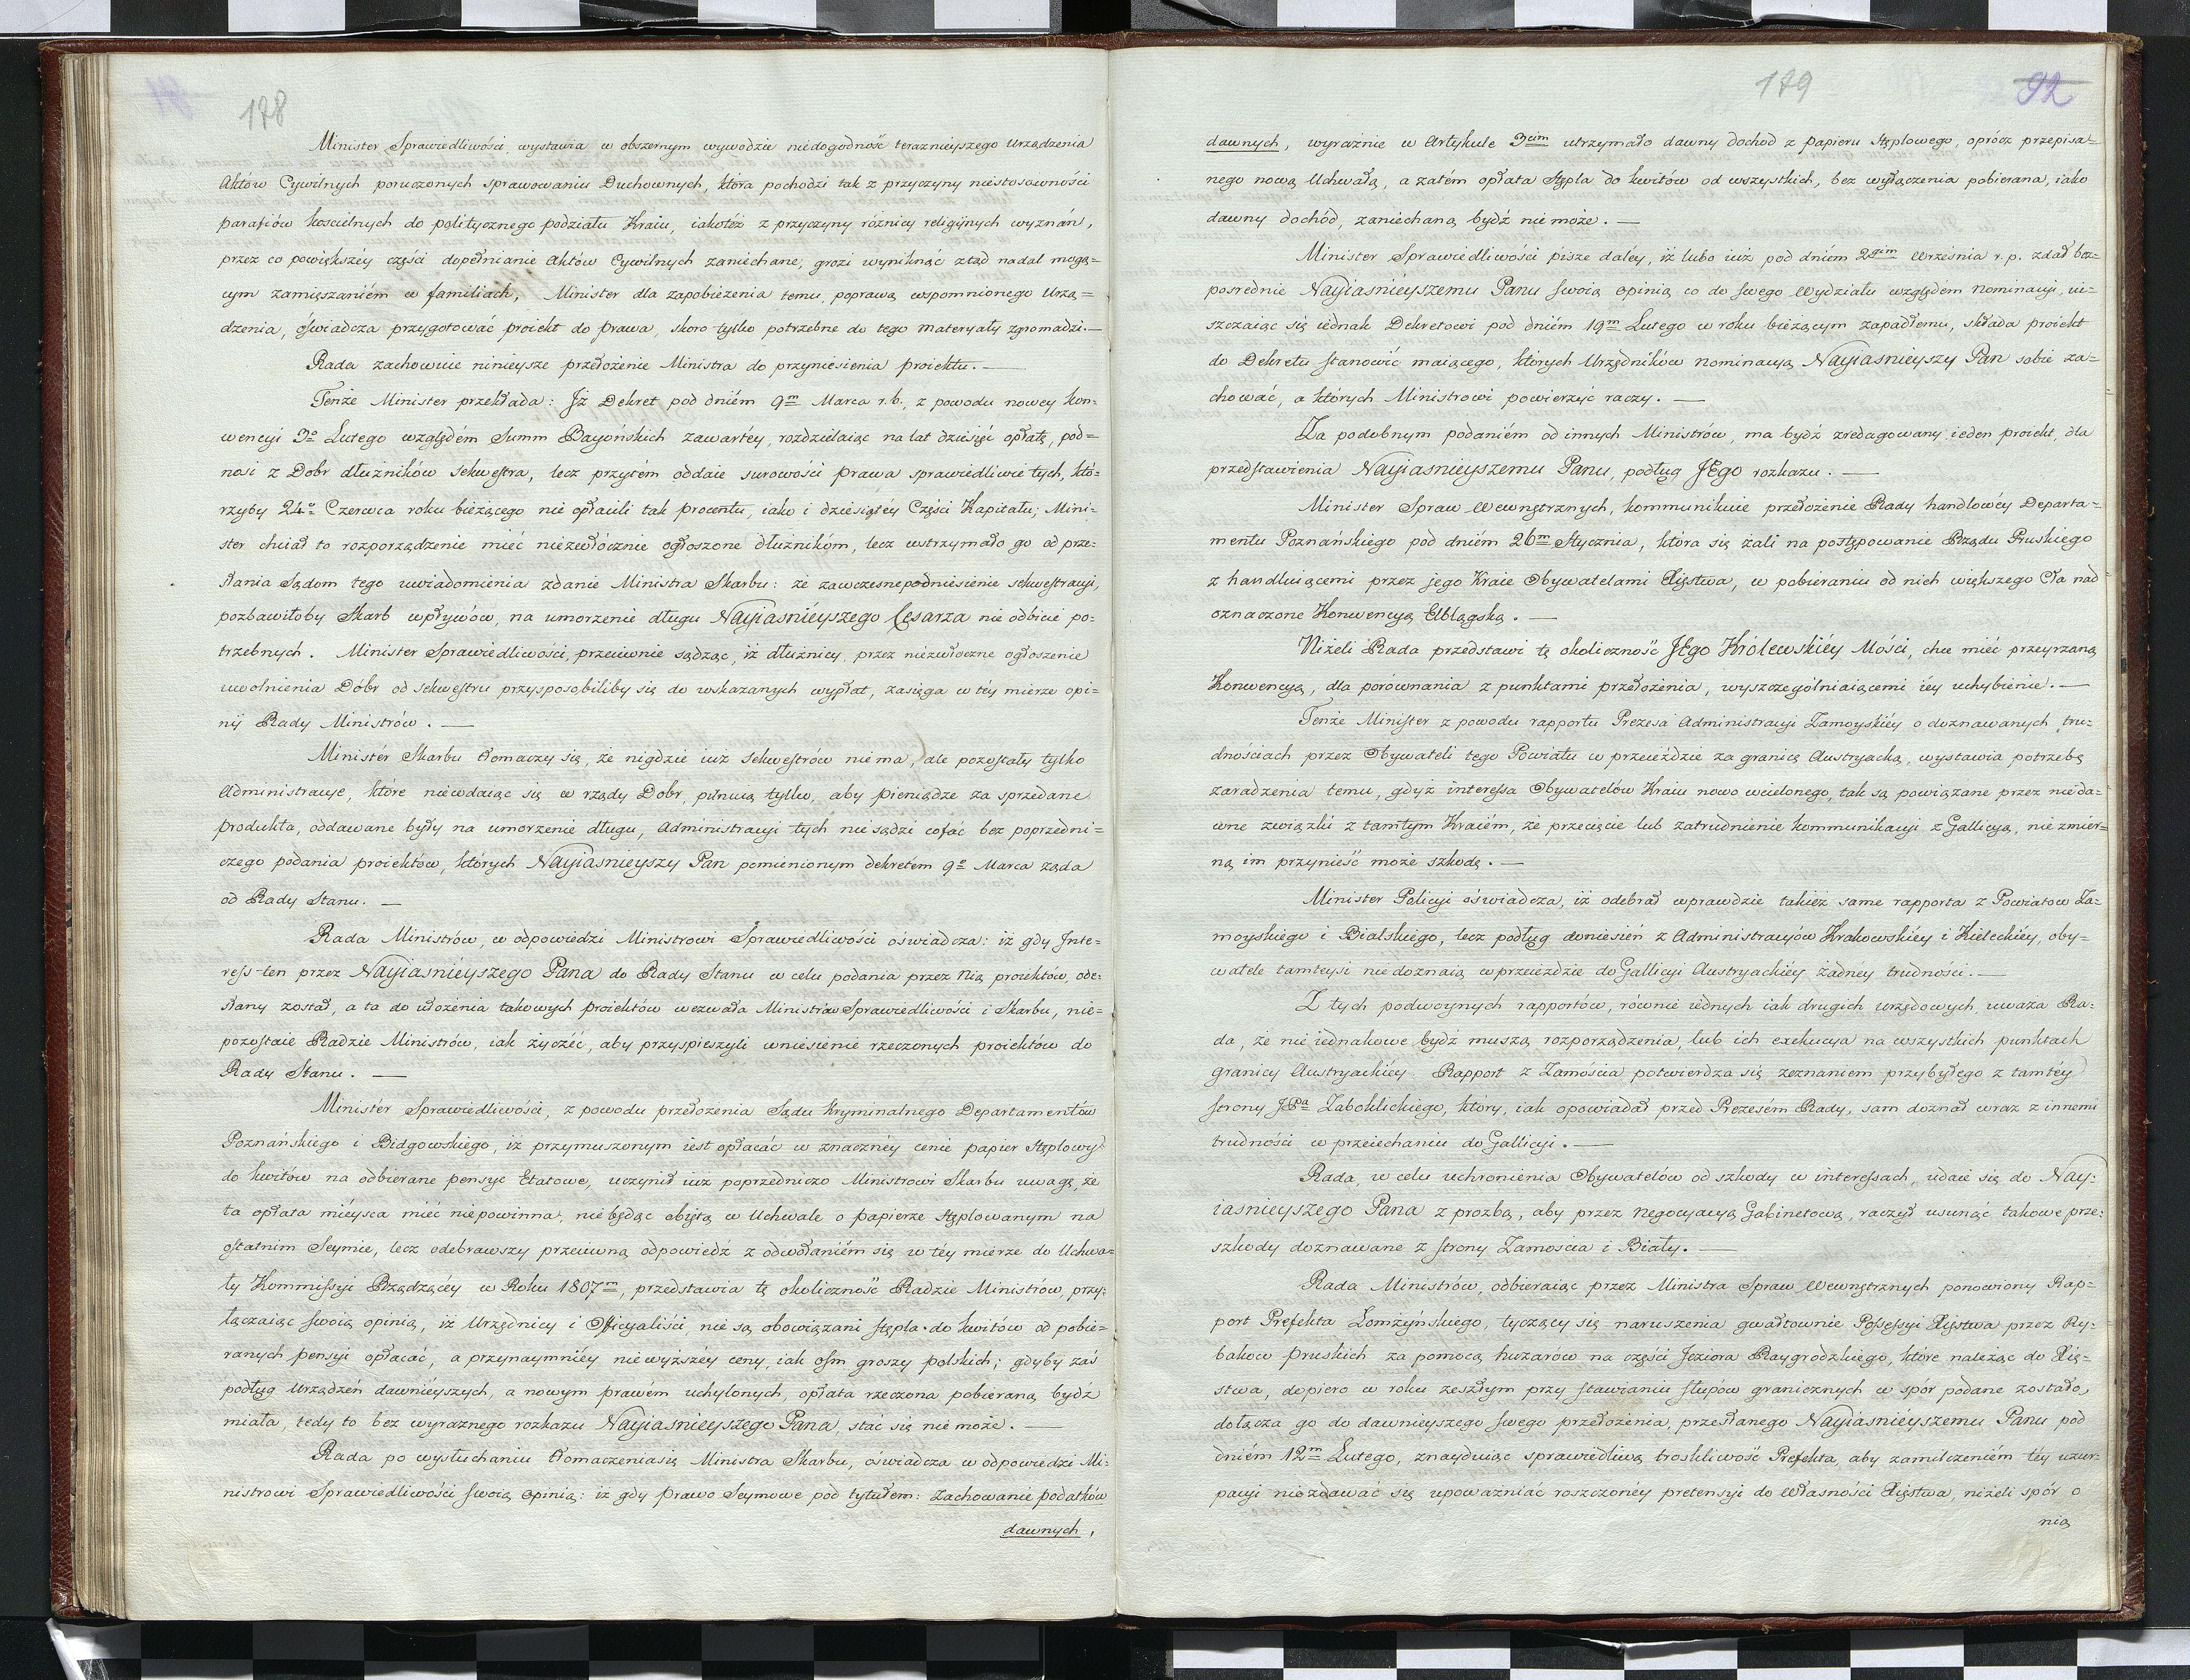 178
Minister Sprawiedliwości wystawia w obszernym wywodzie niedogodność teraznieyszego Urządzenia
Aktów Cywilnych poruczonych sprawowaniu Duchownych, która pochodzi tak z przyczyny niestosowności
parafiów kościelnych do politycznego podziału Kraiu, iakotéż z przyczyny różnicy religiynych wyznań,
przez co powiększéy części dopełnianie Aktów Cywilnych zaniechane, grozi wyniknąć ztąd nadal mogą=
cym zamięszaniém w familiach, Minister dla zapobieżenia temu, poprawą wspomnionego Urzą=
dzenia, oświadcza przygotować proiekt do prawa, skoro tylko potrzebne do tego materyały zgromadzi. —
Rada zachowuie ninieysze przełożenie Ministra do przyniesienia proiektu. —
Tenże Minister przekłada: Iż Dekret pod dniém 9m Marca r. b., z powodu nowey Kon=
wencyi 3o Lutego względém Summ Bayońskich zawartéy, rozdzielaiąc na lat dziesięć opłatę, pod=
nosi z Dobr dłużników sekwestra, lecz przytém oddaie surowości prawa sprawiedliwie tych, któ=
rzyby 24o Czerwca roku bieżącego nie opłacili tak procentu, iako i dziesiątéy Części Kapitału; Mini=
ster chciał to rozporządzenie mieć niezwłócznie ogłoszone dłużnikóm, lecz wstrzymało go od prze=
słania Sądom tego uwiadomienia zdanie Ministra Skarbu: że zawczesne podniesienie sekwestracyi,
pozbawiłoby Skarb wpływów, na umorzenie długu Nayiaśniéyszego Cesarza nie odbicie po=
trzebnych. Minister Sprawiedliwości, przeciwnie sądząc, iż dłużnicy, przez niezwłoczne ogłoszenie
uwolnienia Dóbr od sekwestru przysposobiliby się do wskazanych wypłat, zasięga w téy mierze opi=
nii Rady Ministrów. —
Ministér Skarbu tłomaczy się, że nigdzie iuż sekwestrów nie ma, ale pozostały tylko
Administracye, które niewdaiąc się w rządy Dobr, pilnuią tylko, aby pieniądze za sprzedane
produkta, oddawane były na umorzenie długu, Administracyi tych nie sądzi cofać bez poprzedni=
czego podania proiektów, których Nayiaśnieyszy Pan pomienionym dekretém 9o Marca żąda
od Rady Stanu. —
Rada Ministrów, w odpowiedzi Ministrowi Sprawiedliwości oświadcza: iż gdy Inte=
ress ten przez Nayiaśniéyszego Pana do Rady Stanu w celu podania przez Nią proiektów, ode=
słany został, a ta do ułożenia takowych proiektów wezwała Ministrów Sprawiedliwości i Skarbu, nie=
pozostaie Radzie Ministrów, iak życzéć, aby przyspieszyli wniesienie rzeczonych proiektów do
Rady Stanu. —
Ministér Sprawiedliwości, z powodu przełożenia Sądu Kryminalnego Departamentów
Poznańskiego i Bidgowskiego, iż przymuszonym iest opłacać w znacznéy cenie papier stęplowy
do kwitów na odbierane pensye Etatowe, uczynił iuż poprzedniczo Ministrowi Skarbu uwagę, że
ta opłata mieysca mieć niepowinna, nie będąc obiętą w Uchwale o papierze stęplowanym na
ostatnim Seymie, lecz odebrawszy przeciwną odpowiedź z odwołaniém się w téy mierze do Uchwa=
ły Kommissyi Rządzącéy w Roku 1807m, przedstawia tę okoliczność Radzie Ministrów, przy=
łączaiąc swoią opinią, iż Urzędnicy i Officyaliści, nie są obowiązani stępla do kwitów od pobie=
ranych pensyi opłacać, a przynaymniéy niewyższéy ceny, iak ośm groszy polskich; gdyby zaś
podług Urządzeń dawniéyszych, a nowym prawém uchylonych, opłata rzeczona pobieraną bydź
miała, tedy to bez wyraznego rozkazu Nayiaśnieyszego Pana, stać się nie może.
Rada po wysłuchaniu tłomaczeniasię Ministra Skarbu, oświadcza w odpowiedzi Mi=
nistrowi Sprawiedliwości swoią opinią: iż gdy prawo Seymowe pod tytułem: Zachowanie podatków
dawnych,
179
92
dawnych, wyraźnie w Artykule 3cim utrzymało dawny dochod z papieru stęplowego, oprócz przepisa=
nego nową Uchwałą, a zatém opłata stępla do kwitów od wszystkich, bez wyłączenia pobierana, iako
dawny dochód, zaniechaną bydź nie może. —
Minister Sprawiedliwości pisze daléy, iż lubo iuż pod dniém 2gim Września r. p. zdał bez=
pośrednie Nayiaśniéyszemu Panu swoią opinią co do swego Wydziału względém nominacyi, ui=
szczaiąc się iednak Dekretowi pod dniém 19m Lutego w roku bieżącym zapadłemu, składa proiekt
do Dekretu stanowić maiącego, których Urzędników nominacyą Nayiaśnieyszy Pan sobie za=
chować, a których Ministrowi powierzyć raczy. —
Za podobnym podaniém od innych Ministrów, ma bydź zredagowany ieden proiekt, dla
przedstawienia Nayiaśnieyszemu Panu, podług JEgo rozkazu. —
Minister Spraw Wewnętrznych, kommunikuie przełożenie Rady handlowéy Departa=
mentu Poznańskiego pod dniém 26m Stycznia, która się żali na postępowanie Rządu Pruskiego
z handluiącemi przez jego Kraie Obywatelami Xięstwa, w pobieraniu od nich większego Cła nad
oznaczone Konwencyą Elblągską. —
Niżeli Rada przedstawi tę okoliczność JEgo Królewskiéy Mości, chce mieć przeyrzaną
Konwencyą, dla porównania z punktami przełożenia, wyszczególniaiącemi iéy uchybienie. —
Tenże Minister z powodu rapportu Prezesa Administracyi Zamoyskiéy o doznawanych tru=
dnościach przez Obywateli tego Powiatu w przeieździe za granicę Austryacką, wystawia potrzebę
zaradzenia temu, gdyż interessa Obywatelów Kraiu nowo wcielonego, tak są powiązane przez nieda=
wne związki z tamtym Kraiém, że przecięcie lub zatrudnienie kommunikacyi z Gallicyą, niezmier=
ną im przynieść może szkodę. —
Minister Policyi oświadcza, iż odebrał wprawdzie takież same rapporta z Powiatow Za=
moyskiego i Bialskiego, lecz podług doniesień z Administracyów Krakowskiéy i Kieleckiéy, oby=
watele tamteysi niedoznaią w przeieździe do Gallicyi Austryackiéy żadnéy trudności. —
Z tych podwoynych rapportów, równie iednych iak drugich urzędowych, uważa Ra=
da, że nie iednakowe bydź muszą rozporządzenia, lub ich exekucya na wszystkich punktach
granicy Austryackiéy. Rapport z Zamościa potwierdza się zeznaniem przybyłego z tamtéy
strony JPa Zaboklickiego, który, iak opowiadał przed Prezesém Rady, sam doznał wraz z innemi
trudności w przeiechaniu do Gallicyi. —
Rada, w celu uchronienia Obywatelów od szkody w interessach, udaie się do Nay=
iaśnieyszego Pana z prozbą, aby przez negocyacyą Gabinetową, raczył usunąć takowe prze=
szkody doznawane z strony Zamościa i Biały. —
Rada Ministrów, odbieraiąc przez Ministra Spraw Wewnętrznych ponowiony Rap=
port Prefekta Łomżyńskiego, tyczący się naruszenia gwałtownie Possessyi Xięstwa przez Ry=
bakow pruskich za pomocą huzarów na części Jeziora Raygrodzkiego, które należąc do Xię=
stwa, dopiero w roku zeszłym przy stawianiu słupów granicznych w spór podane zostało,
dołącza go do dawnieyszego swego przełożenia, przesłanego Nayiaśniéyszemu Panu pod
dniém 12m Lutego, znayduiąc sprawiedliwą troskliwość Prefekta, aby zamilczeniém téy uzur=
pacyi niezdawać się upoważniać roszczonéy pretensyi do Własności Xięstwa, niżeli spór o
nią